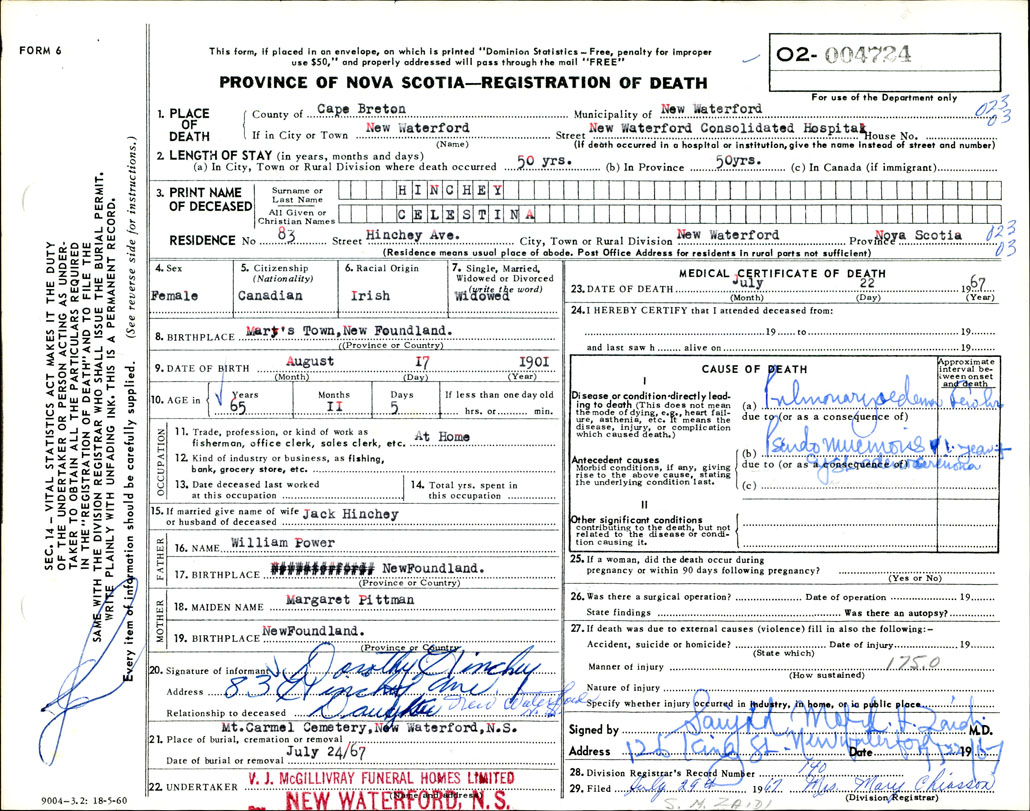 FORM 6
This form, if placed in an envelope, on which is printed "Dominion Statistics – Free, penalty for improper
use $50," and properly addressed will pass through the mail "FREE"
O2- 004724
PROVINCE OF NOVA SCOTIA—REGISTRATION OF DEATH
For use of the Department only
023
03
1. PLACE OF DEATH
County of Cape Breton Municipality of New Waterford
If in City or Town New Waterford Street New Waterford Consolidated Hospital House No.
(Name) (If death occurred in a hospital or institution, give the name instead of street and number)
2. LENGTH OF STAY (in years, months and days)
(a) In City, Town or Rural Division where death occurred 50 yrs. (b) In Province 50yrs. (c) In Canada (if immigrant)
3. PRINT NAME OF DECEASED
Surname or Last Name HINCHEY
All Given or Christian Names CELESTINA
RESIDENCE No 83 Street Hinchey Ave. City, Town or Rural Division New Waterford Province Nova Scotia
023
03
(Residence means usual place of abode. Post Office Address for residents in rural parts not sufficient)
SEC. 14 – VITAL STATISTICS ACT MAKES IT THE DUTY
OF THE UNDERTAKER OR PERSON ACTING AS UNDER-
TAKER TO OBTAIN ALL THE PARTICULARS REQUIRED
IN THE "REGISTRATION OF DEATH" AND TO FILE THE
SAME WITH THE DIVISION REGISTRAR WHO SHALL ISSUE THE BURIAL PERMIT.
WRITE PLAINLY WITH UNFADING INK. THIS IS A PERMANENT RECORD.
Every item of information should be carefully supplied. (See reverse side for instructions.)
4. Sex
Female
5. Citizenship
(Nationality)
Canadian
6. Racial Origin
Irish
7. Single, Married,
Widowed or Divorced
(write the word)
Widowed
8. BIRTHPLACE Mary's Town, New Foundland.
(Province or Country)
9. DATE OF BIRTH August 17 1901
(Month) (Day) (Year)
10. AGE in Years 65 Months II Days 5 If less than one day old
hrs. or min.
OCCUPATION
11. Trade, profession, or kind of work as
fisherman, office clerk, sales clerk, etc. At Home
12. Kind of industry or business, as fishing,
bank, grocery store, etc.
13. Date deceased last worked
at this occupation
14. Total yrs. spent in
this occupation
15. If married give name of wife
or husband of deceased Jack Hinchey
FATHER
16. NAME William Power
17. BIRTHPLACE NewFoundland.
(Province or Country)
MOTHER
18. MAIDEN NAME Margaret Pittman
19. BIRTHPLACE NewFoundland.
(Province or Country)
20. Signature of informant Dorothy Hinchey
Address 83 Hinchey Ave, New Waterford
Relationship to deceased Daughter
Mt.Carmel Cemetery, New Waterford, N.S.
21. Place of burial, cremation or removal
July 24/67
Date of burial or removal
22. UNDERTAKER V. J. McGILLIVRAY FUNERAL HOMES LIMITED
(Name and address)
NEW WATERFORD, N. S.
9004–3.2: 18-5-60
MEDICAL CERTIFICATE OF DEATH
23. DATE OF DEATH July 22 1967
(Month) (Day) (Year)
24. I HEREBY CERTIFY that I attended deceased from:
19 to 19
and last saw h alive on 19
CAUSE OF DEATH
Approximate
interval be-
tween onset
and death
I
Disease or condition directly lead-
ing to death (This does not mean
the mode of dying, e.g., heart fail-
ure, asthenia, etc. It means the
disease, injury, or complication
which caused death.)
(a) Pulmonary oedema
due to (or as a consequence of)
Antecedent causes
Morbid conditions, if any, giving
rise to the above cause, stating
the underlying condition last.
(b) Pseudo mucinous 1 year
due to (or as a consequence of)
(c)
II
Other significant conditions
contributing to the death, but not
related to the disease or condi-
tion causing it.
25. If a woman, did the death occur during
pregnancy or within 90 days following pregnancy?
(Yes or No)
26. Was there a surgical operation? Date of operation 19
State findings Was there an autopsy?
27. If death was due to external causes (violence) fill in also the following:–
Accident, suicide or homicide? Date of injury 19
(State which)
1750
Manner of injury
(How sustained)
Nature of injury
Specify whether injury occurred in industry, in home, or in public place
Signed by Saiyid Mohd. H. Zaidi M.D.
Address 126 King St. New Waterford Date 1967
28. Division Registrar's Record Number 140
29. Filed July 29th 1967 Mrs. Mary Chiasson
(Division Registrar)
S. M. ZAIDI